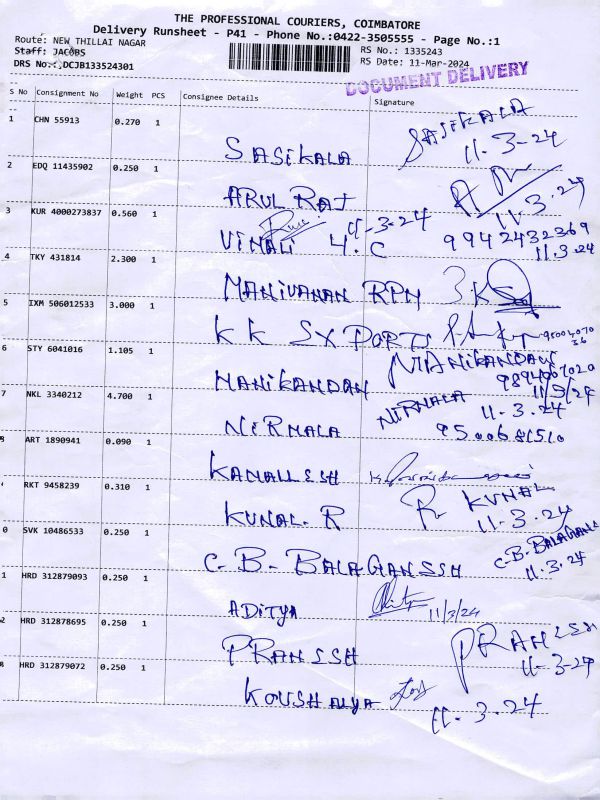 THE PROFESSIONAL COURIERS, COIMBATORE
Delivery Runsheet - P41 - Phone No.:0422-3505555 - Page No.:1
Route: NEW THILLAI NAGAR RS No.: 1335243
Staff: JACOBS RS Date: 11-Mar-2024
DRS No.:.DCJB133524301
DOCUMENT DELIVERY
S No Consignment No Weight PCS Consignee Details Signature
1 CHN 55913 0.270 1 SASIKALA SASIKALA
11-3-24
2 EDQ 11435902 0.250 1 ARUL RAJ
11.3.24
3 KUR 4000273837 0.560 1 VINALI 4.C 11-3-24 9942432369
11.3.24
4 TKY 431814 2.300 1 MANIVANAN RPM
5 IXM 506012533 3.000 1 KK SX PORTS
6 STY 6041016 1.105 1 MANIKANDAN MANIKANDAN
9894007020
11/3/24
7 NKL 3340212 4.700 1 NIRMALA NIRMALA 11-3.24
9500681510
8 ART 1890941 0.090 1 KAMALLESH
RKT 9458239 0.310 1 KUNAL.R KUNAL
11-3.24
0 SVK 10486533 0.250 1 C-B-BALAGANSSH C-B-BALAGANS
11.3.24
1 HRD 312879093 0.250 1 ADITYA 11/3/24
2 HRD 312878695 0.250 1 PRANSSH PRANSSH
11-3-24
HRD 312879072 0.250 1 KOUSHALYA
11-3.24